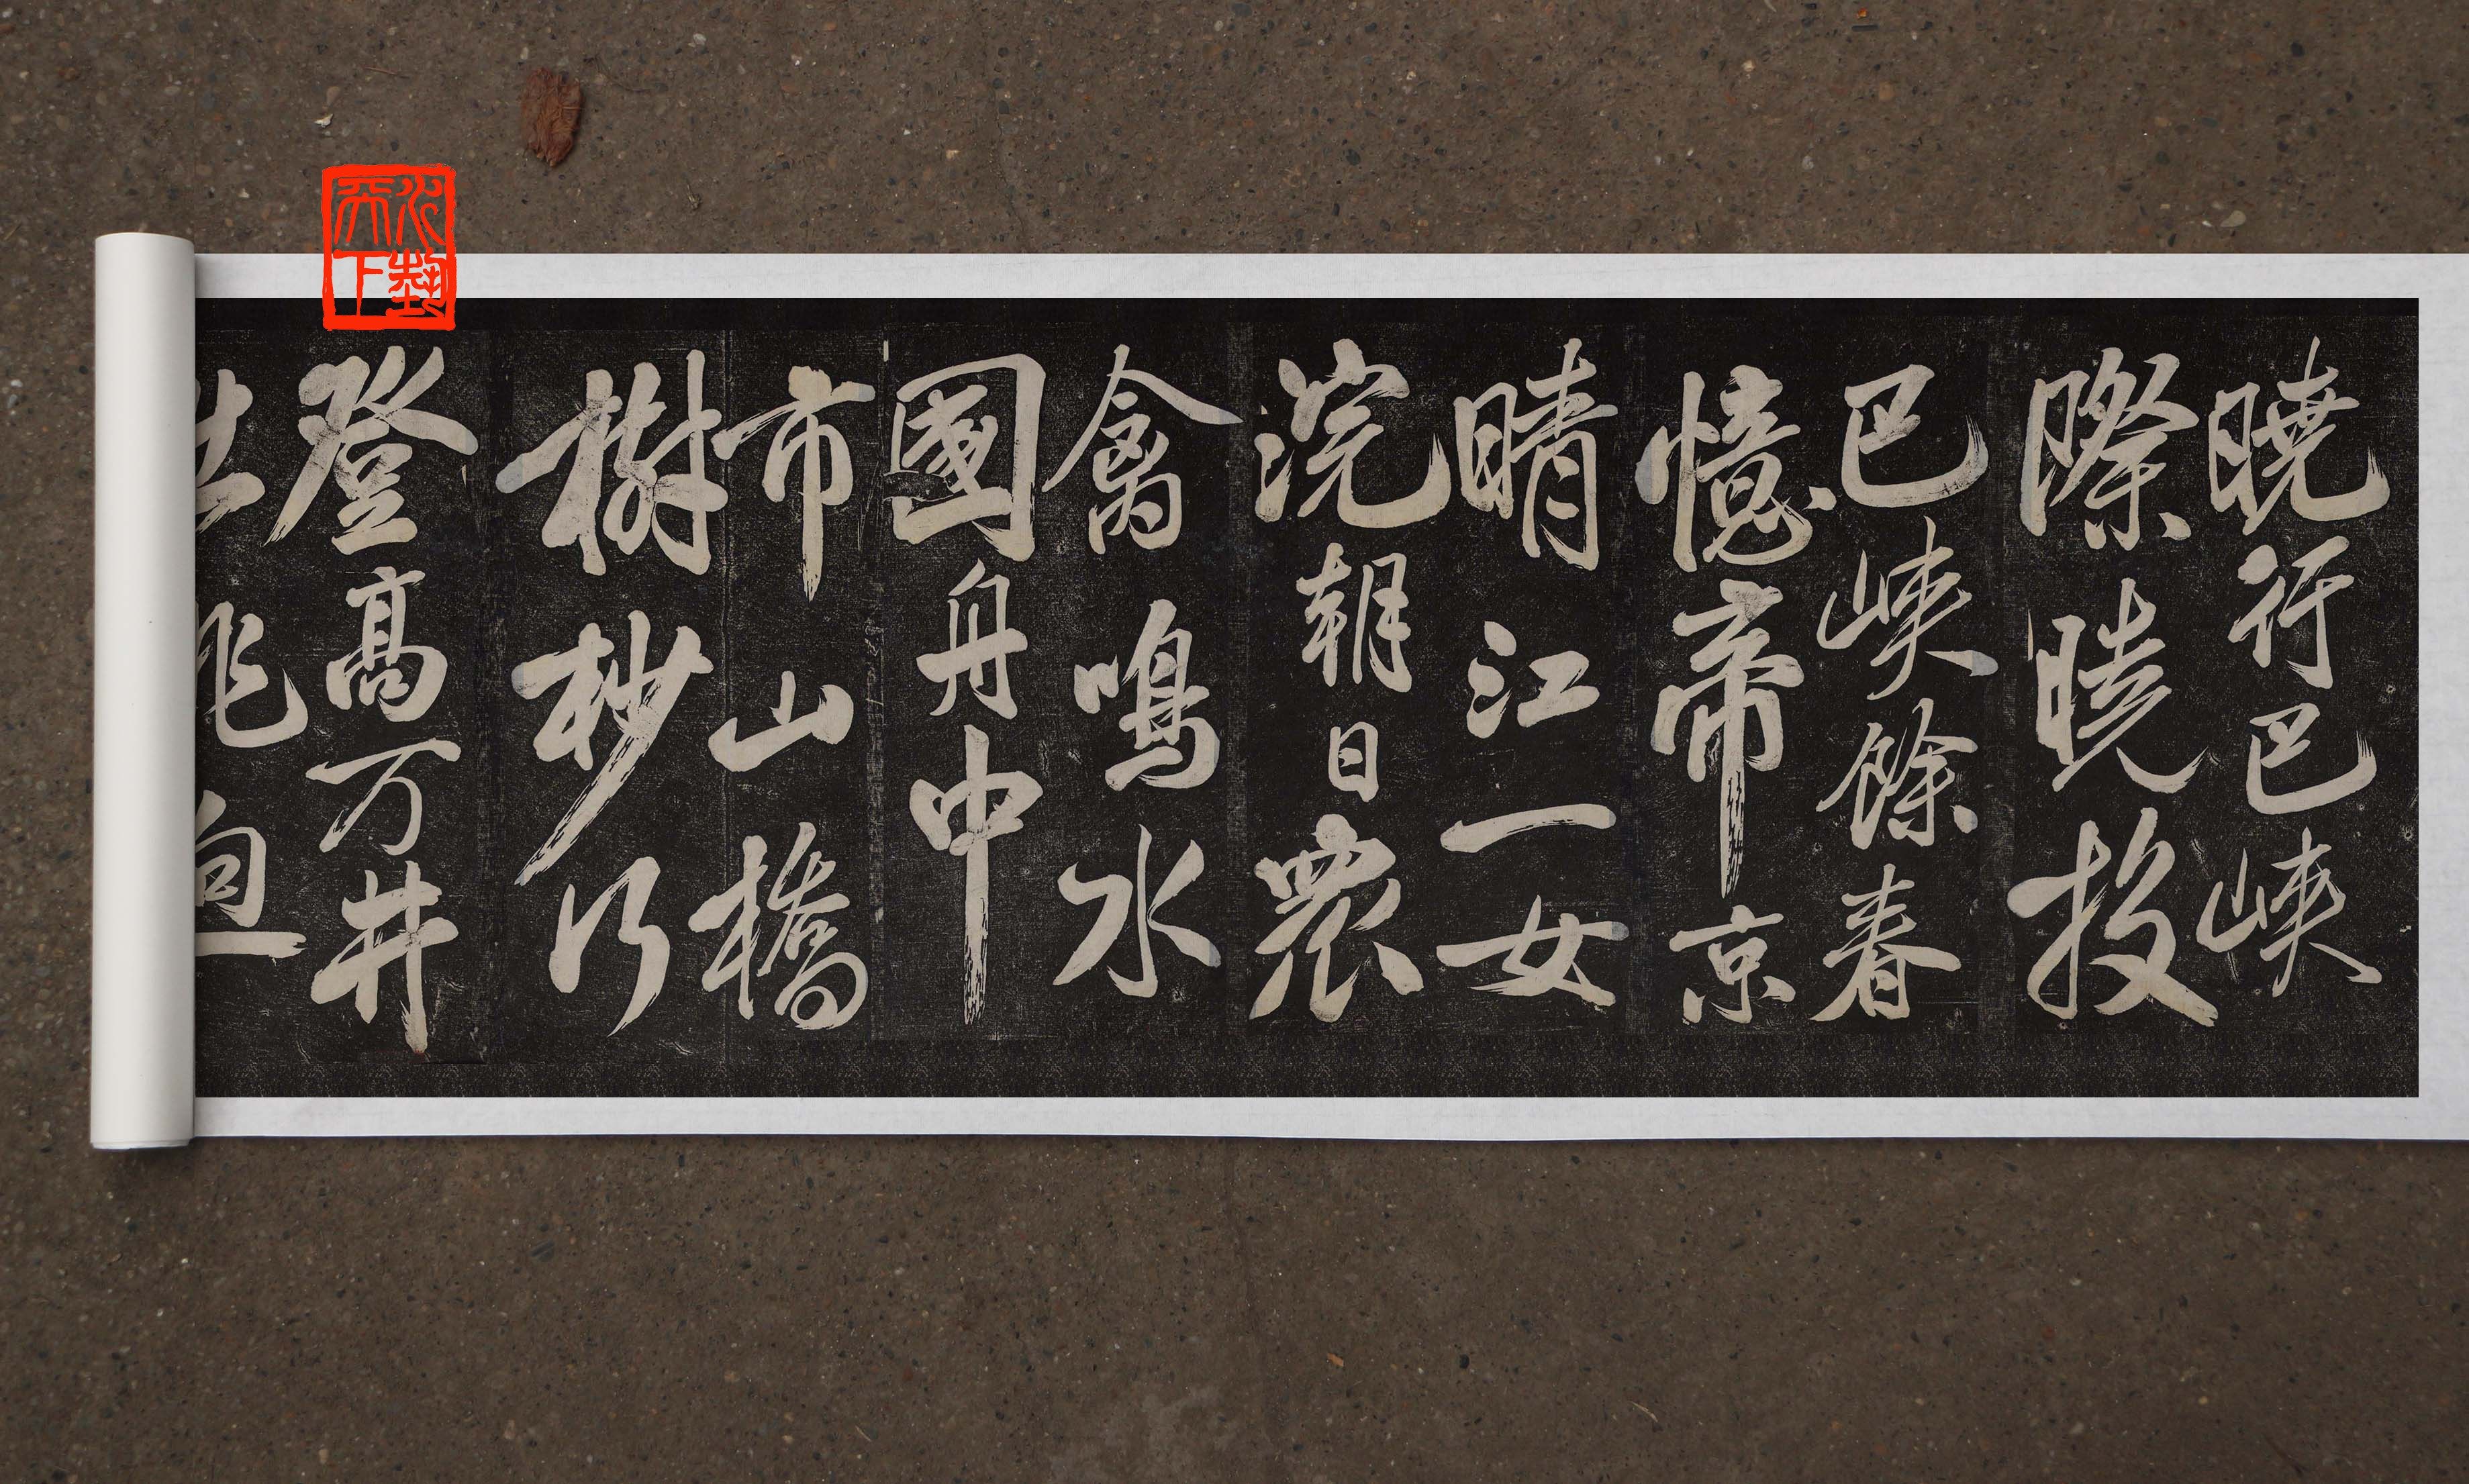 曉行巴峽
際曉投
巴峽餘春
憶帝京
晴江一女
浣朝日衆
禽鳴水
國舟中
市山橋
樹杪行
登高万井
出眺迥
天下